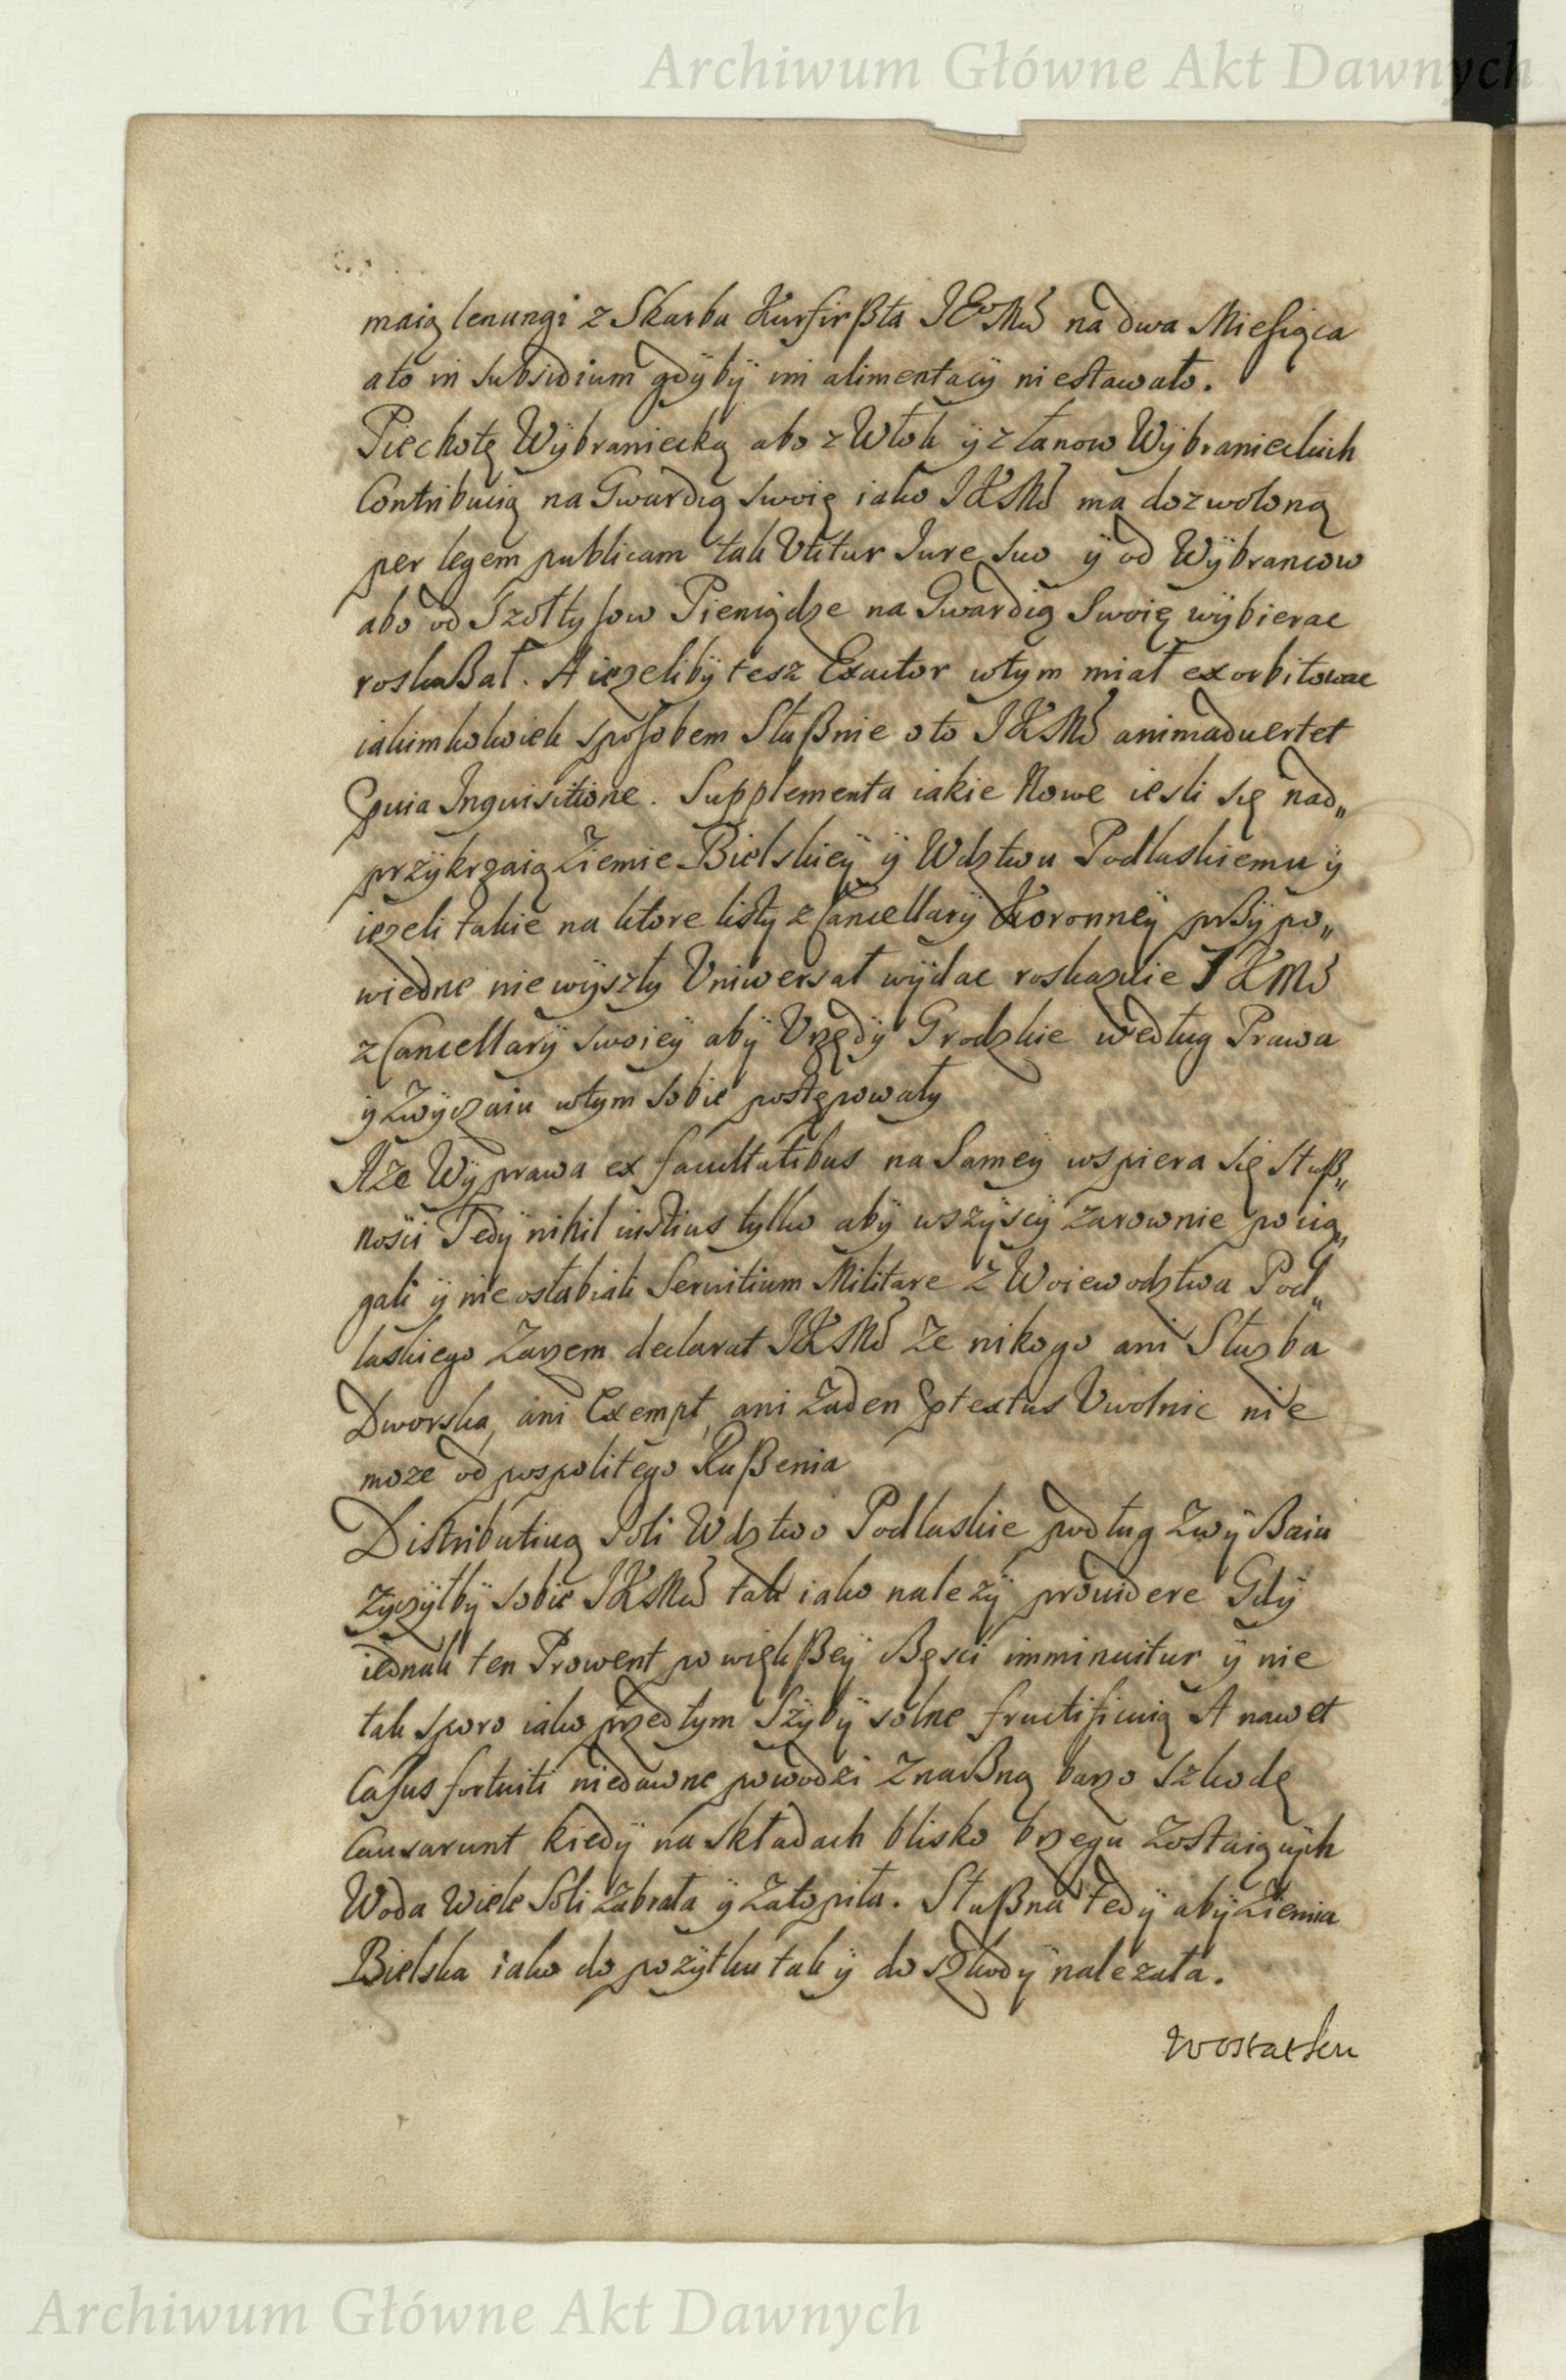 Archiwum Główne Akt Dawnych
maią lenungi z Skarbu Kurfirßta JEoMći na dwa Miesiąca
a to in subsidium gdÿbÿ im alimentacÿ niestawało.
Piechotę Wÿbraniecką abo z Włok ÿ z łanow Wÿbranieckich
Contribucią na Gwardią swoię iako JKMść ma dozwoloną
per legem publicam tak Utitur Jure suo ÿ od Wÿbrancow
abo od Szołtysow Pieniądze na Gwardią Swoię wÿbierac
roskaßał. A ieżelibÿ tesz Exactor wtym miał exorbitowac
iakimkolwiek sposobem Słußnie o to JKMść animaduertet
Quia Inquisitione. Supplementa iakie Nowe iesli się nad„
przÿkrzaią Ziemie Bielskieÿ ÿ Wdztwu Podlaskiemu ÿ
ieżeli takie na ktore listy z Cancellarÿ Koronneÿ prßÿpo„
wiedne nie wÿszły Uniwersał wÿdac roskazuie JKMść
z Cancellarÿ swoieÿ abÿ Urzędÿ Grodzkie według Prawa
ÿ Zwÿczaiu wtym sobie postępowały
A że Wÿprawa ex facultatibus na Sameÿ wspiera się słuß„
nosci Tedÿ nihil iustius tylko abÿ wszÿscÿ zarownie pocią„
gali ÿ nie osłabiali Seruitium Militare z Woiewodztwa Pod„
laskiego Zaczem declarat JKMść że nikogo ani Służba
Dworska, ani Exempt, ani Żaden Ptextus Uwolnic nie
może od pospolitego Rußenia
Distributiuą Soli Wdztwo Podlaskie podług ZwÿBaiu
Życzÿłbÿ sobie JKMść tak iako należÿ prouidere Gdÿ
iednak ten Prowent po więkßeÿ Bęsci imminuitur ÿ nie
tak sporo iako przedtym Szÿbÿ solne fructificuią A nawet
Casus fortuiti niedawne powodzi Znaßną barzo Szkodę
Causarunt kiedÿ na składach blisko brzegu Zostaiącÿch
Woda Wiele Soli Zabrała ÿ Zatopiła. Słußna tedÿ abÿ Ziemia
Bielska iako do pożÿtku tak ÿ do szkodÿ należała.
Wostatku
Archiwum Główne Akt Dawnych